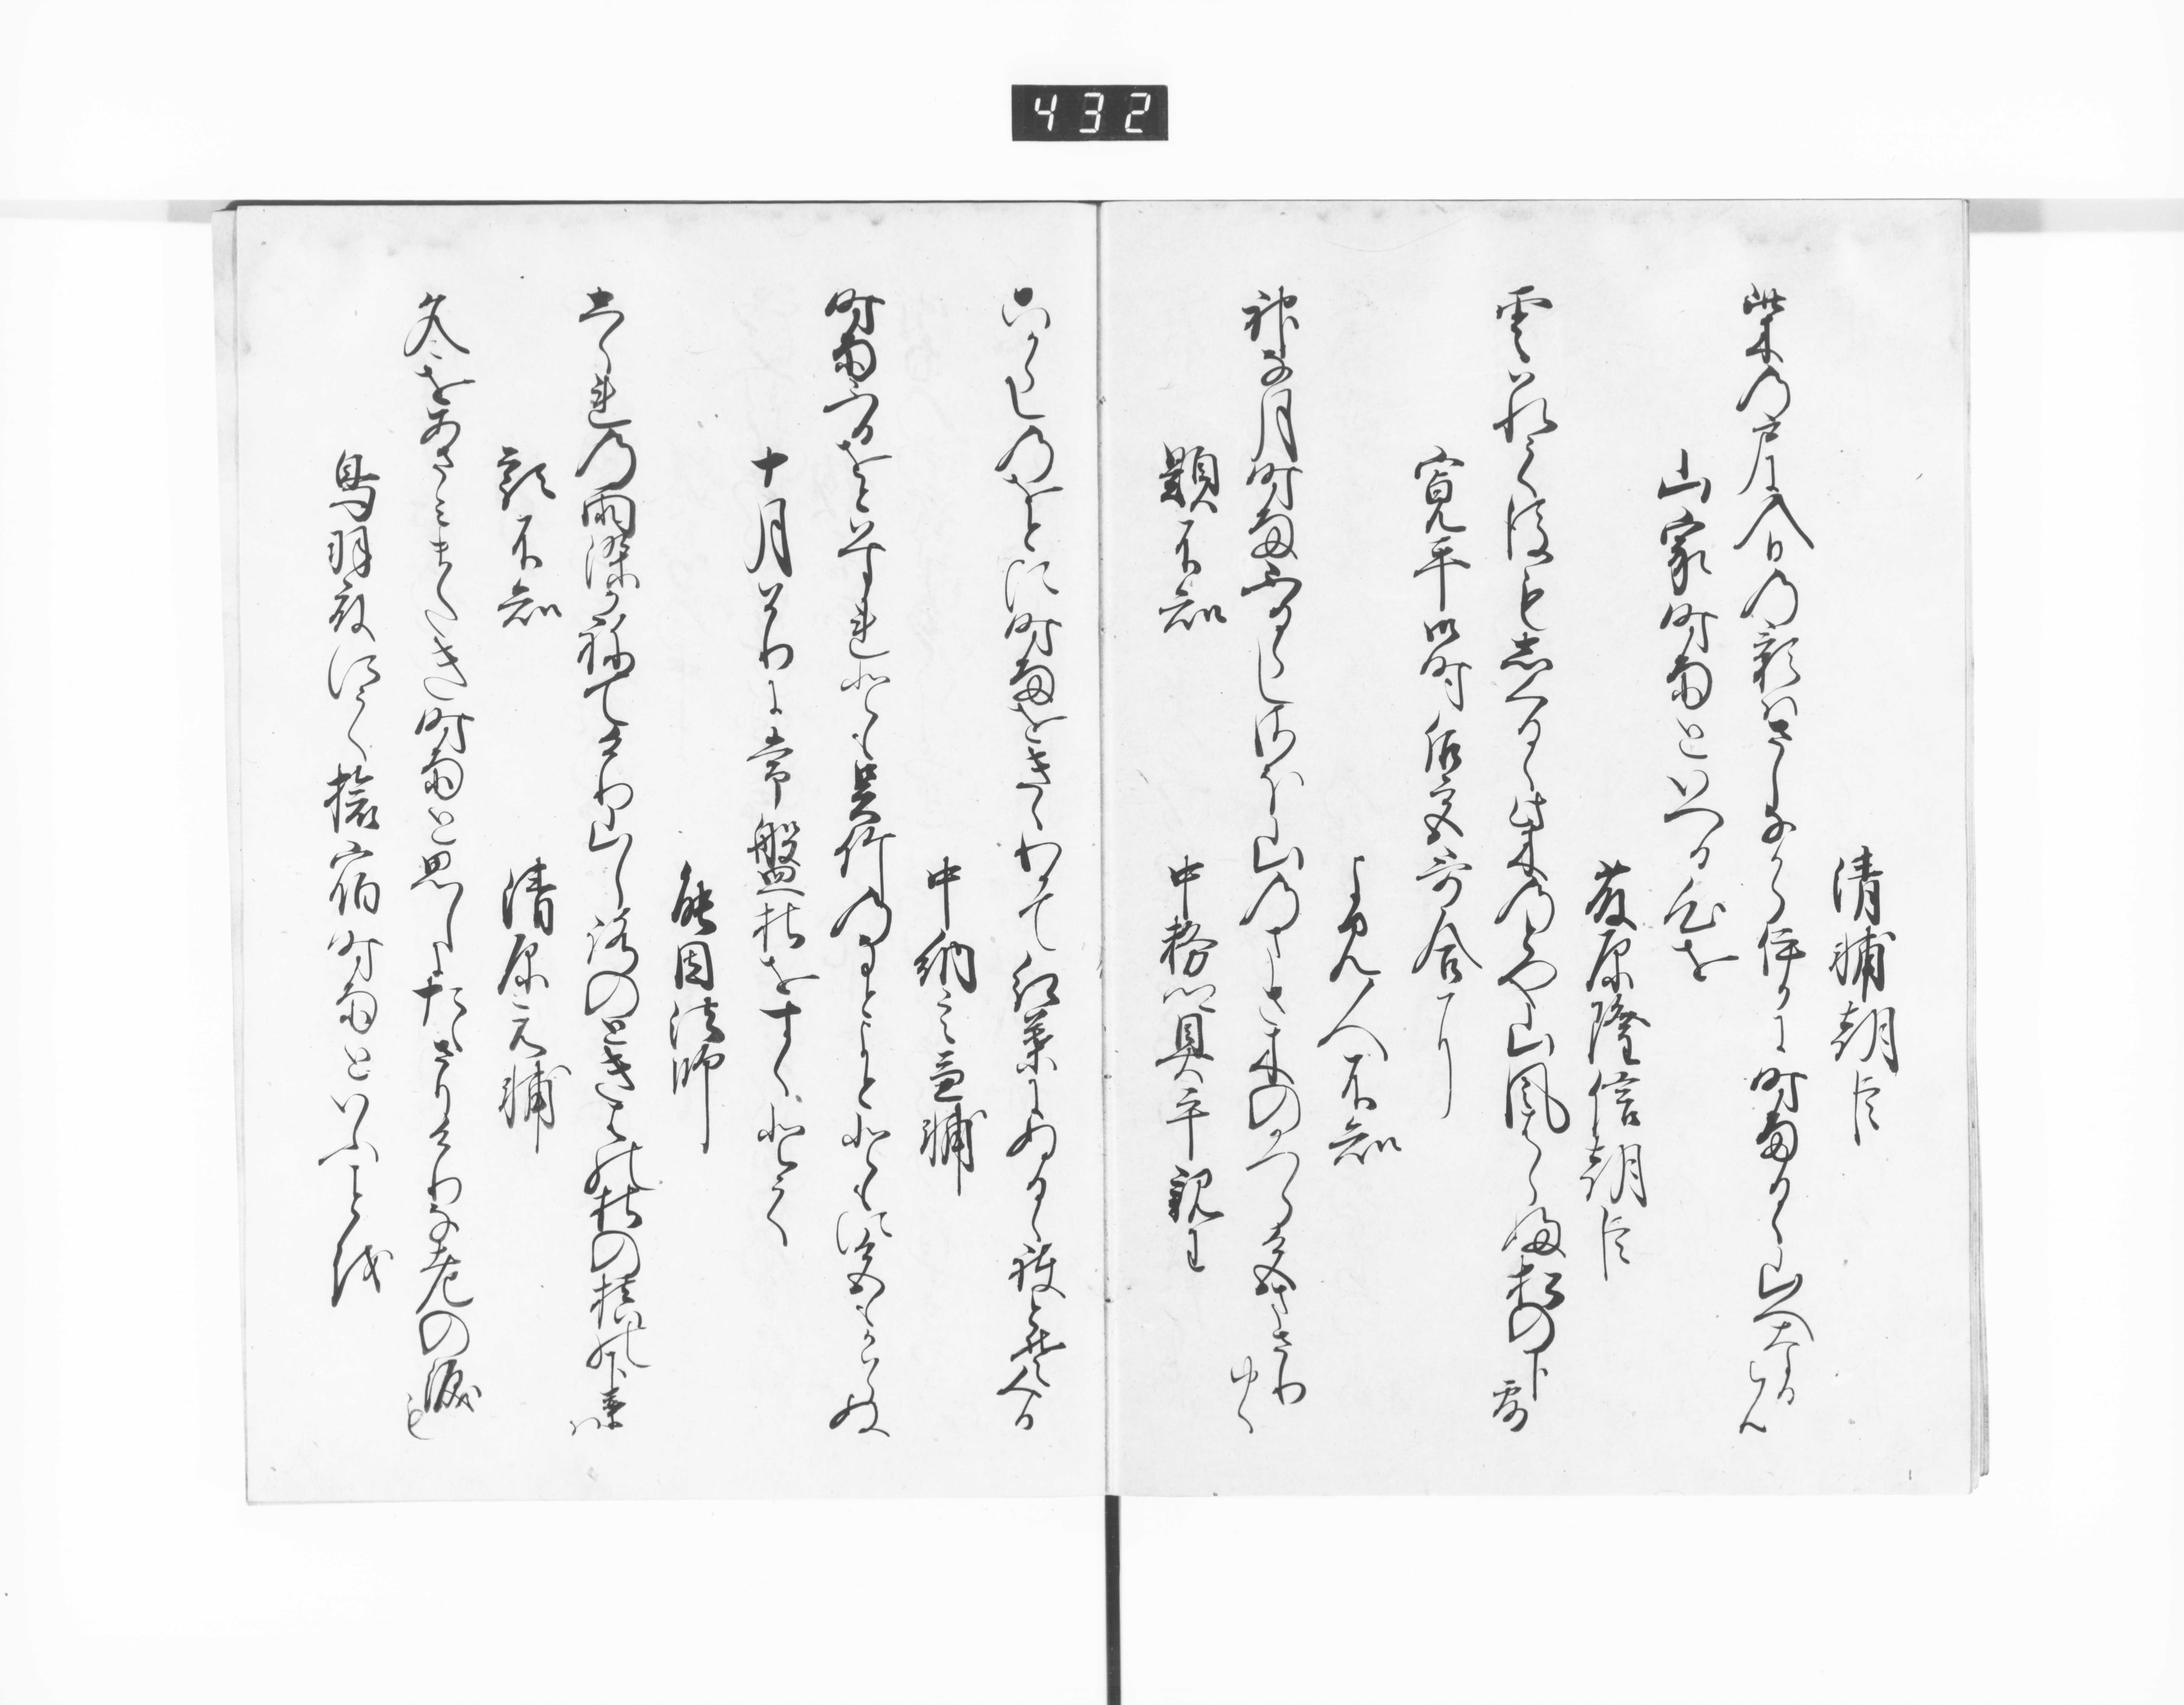 432
清輔朝臣
柴の戸に入日の影はさしなからいかに時雨るゝ山へなるらん
山家時雨といへる心を
藤原隆信朝臣
雲はれて後もしくるゝ柴のとや山風はらふ松の下露
寛平御時后宮哥合に
よみ人不知
神な月時雨ふるらしさほ山のまさきのかつら色まさりゆく
題不知
中務卿具平親王
こからしのをとに時雨をきゝわかて紅葉にぬるゝ袂とそみる
中納言兼輔
時雨ふるをとはすれ共呉竹のなとよとゝもに色もかはらぬ
十月はかり常盤杜をすくとて
能因法師
しくれの雨染かねてけり山しろのときはの杜の槙の下葉は
題不知
清原元輔
冬をあさみまたき時雨と思しをたえさりけりな老の涙も
鳥羽殿にて旅宿時雨といふことを